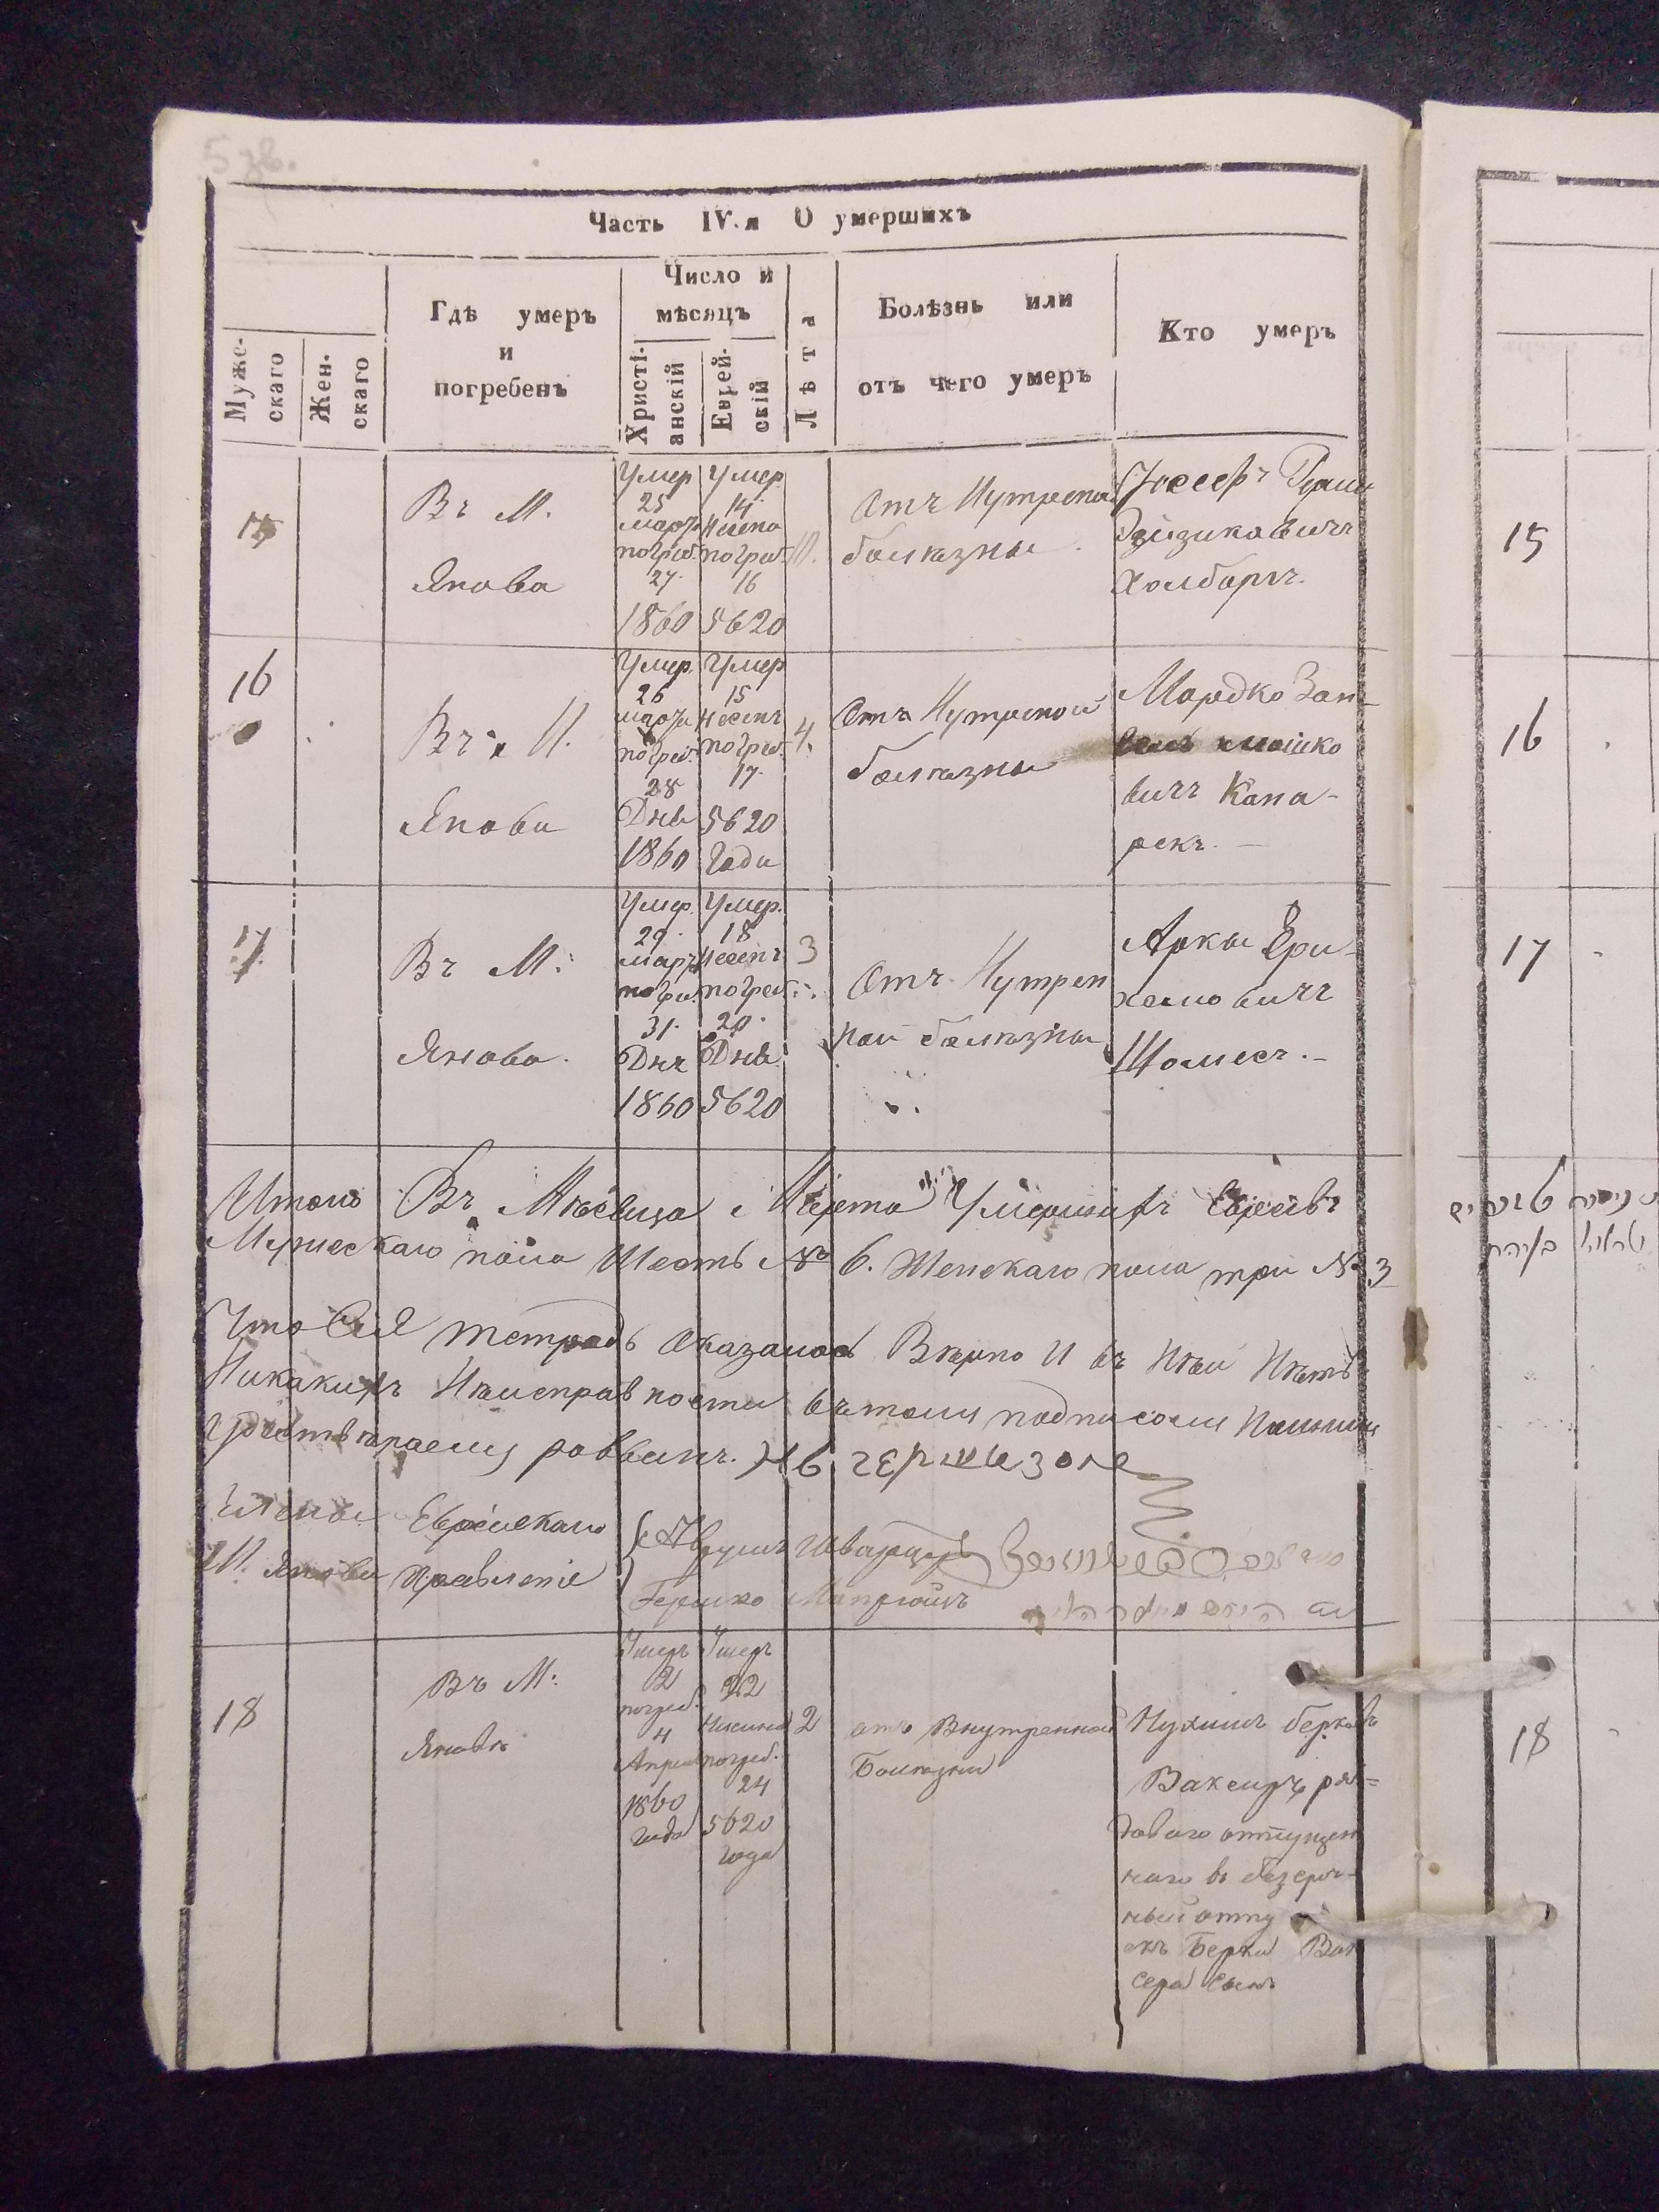 5 зв.
Часть IV.я О умершихъ
Муже-
скаго
Жен-
скаго
Гдѣ умеръ
и
погребенъ
Число и
мѣсяцъ
Христі-
анскій
Еврей-
скій
Лѣта
Болѣзнь или
отъ чего умеръ
Кто умеръ
15
Въ М.
Янова
Умер
25
марта
погреб.
27.
1860
Умер.
14.
Несена
погреб.
16
5620
Отъ Нутрена
болѣзны
Іосефъ
Эйзиковичъ
Холборъ.
16
Въ М.
Янови
Умер.
26
марта
погреб.
28
Дня
1860
Умер
15
Несенъ
погреб.
17.
5620
Года
4.
Отъ Нутреной
болѣзны
Мордко Зан-
вель мошко
вичъ Кана-
рекъ.
17
Въ М.
Янова.
Умер.
29.
Март
погре.
31.
Днъ
1860
Умер.
18
Несенъ
погреб.
20.
Дня
5620
3
Отъ Нутрен
ной болѣзны
Арки Ери-
хемовичъ
Шомесъ.
Итого Въ Мѣсяца Марта Умершихъ Евреевъ
Мужескаго пола Шесть № 6. Женскаго пола три № 3
Что Сія тетрадь оказалась Вѣрно И въ Ней Нѣтъ
Никакихъ Неисправности вътомъ подписомъ Нашимъ
удоствѣраемъ раввинъ.
Члены Еврейскаго
М. Янови Правленіе
Аврумъ Шварцъ
Гершко
18
Въ М:
Яновѣ
Умеръ
2
погреб.
4
Апреля
1860
года
Умеръ
22
Нисина
погреб.
24
5620
года
2
отъ Внутренной
Болѣзни
Нухимъ Берковъ
Ваксеръ ря-
доваго отпущен
наго въ безсроч-
ный отпу
скъ Берки Вак
сера сынъ
15
16
17
18